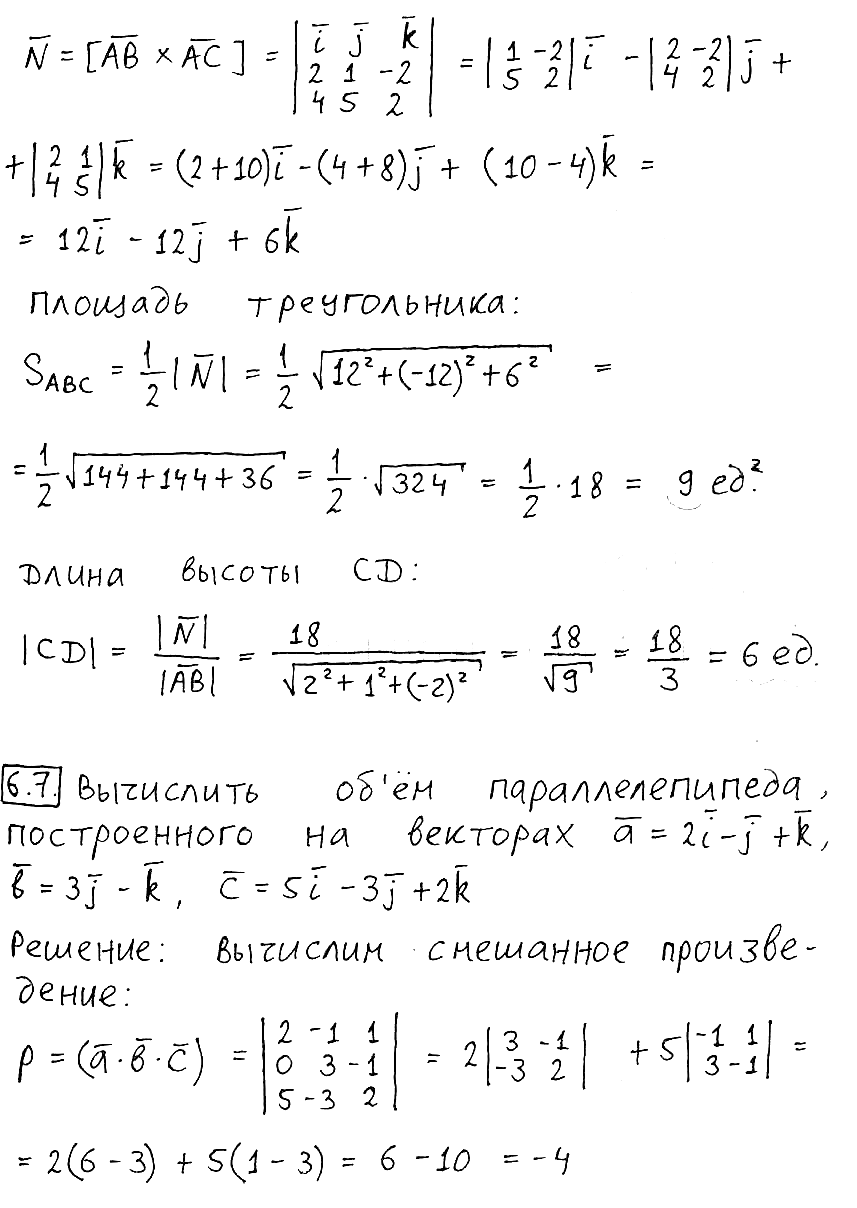 N̅ = [A̅B̅ × A̅C̅] = |i̅ j̅ k̅; 2 1 -2; 4 5 2| = |1 -2; 5 2| i̅ - |2 -2; 4 2| j̅ +
+ |2 1; 4 5| k̅ = (2+10)i̅ - (4+8)j̅ + (10-4)k̅ =
= 12i̅ - 12j̅ + 6k̅
Площадь треугольника:
S_ABC = 1/2 |N̅| = 1/2 √(12²+(-12)²+6²) =
= 1/2 √(144+144+36) = 1/2 · √324 = 1/2 · 18 = 9 ед.²
Длина высоты CD:
|CD| = |N̅|/|A̅B̅| = 18/√(2²+1²+(-2)²) = 18/√9 = 18/3 = 6 ед.
6.7. Вычислить об'ём параллелепипеда,
построенного на векторах a̅ = 2i̅ - j̅ + k̅,
b̅ = 3j̅ - k̅, c̅ = 5i̅ - 3j̅ + 2k̅
Решение: Вычислим смешанное произве-
дение:
p = (a̅·b̅·c̅) = |2 -1 1; 0 3 -1; 5 -3 2| = 2|3 -1; -3 2| + 5|-1 1; 3 -1| =
= 2(6 - 3) + 5(1 - 3) = 6 - 10 = -4